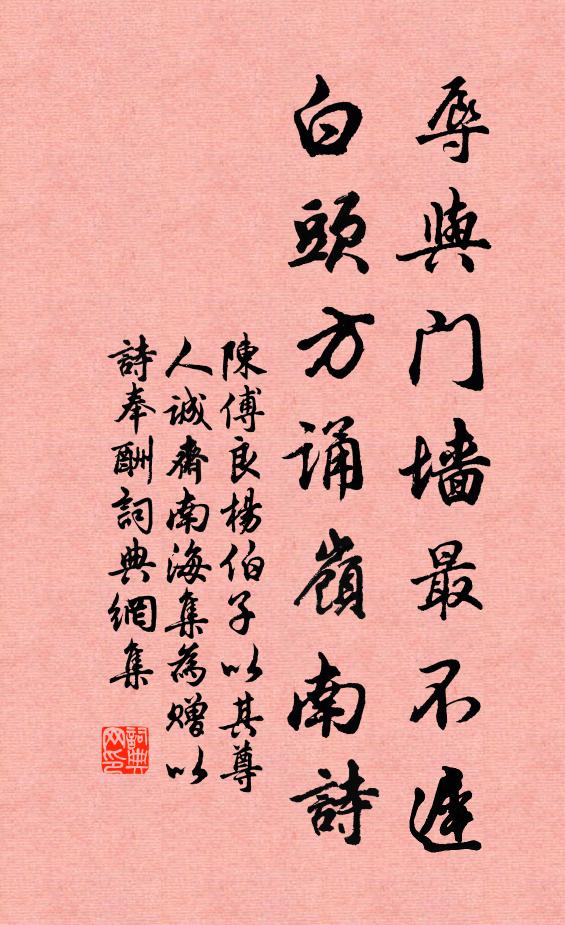 辱與门墙最不遲
白頭方誦嶺南詩
陳傅良楊伯子以其尊
人誠齋南海集為赠以
詩奉酬詞典網集
詞典网印